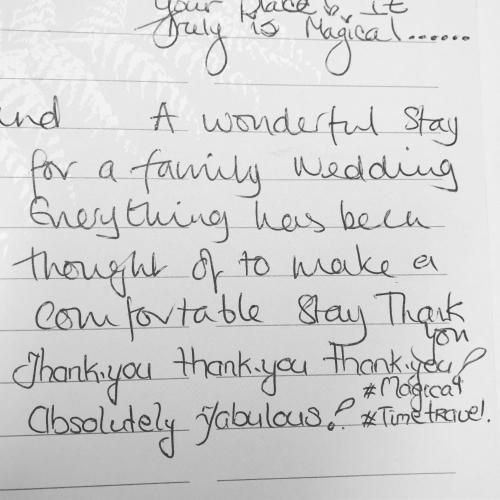 your place, It
truly is Magical.......
A wonderful Stay
for a family Wedding
Everything has been
thought of to make a
comfortable Stay Thank
you
Thank.you thank.you Thank.you!
#Magical
Absolutely Fabulous! #Timetravel.